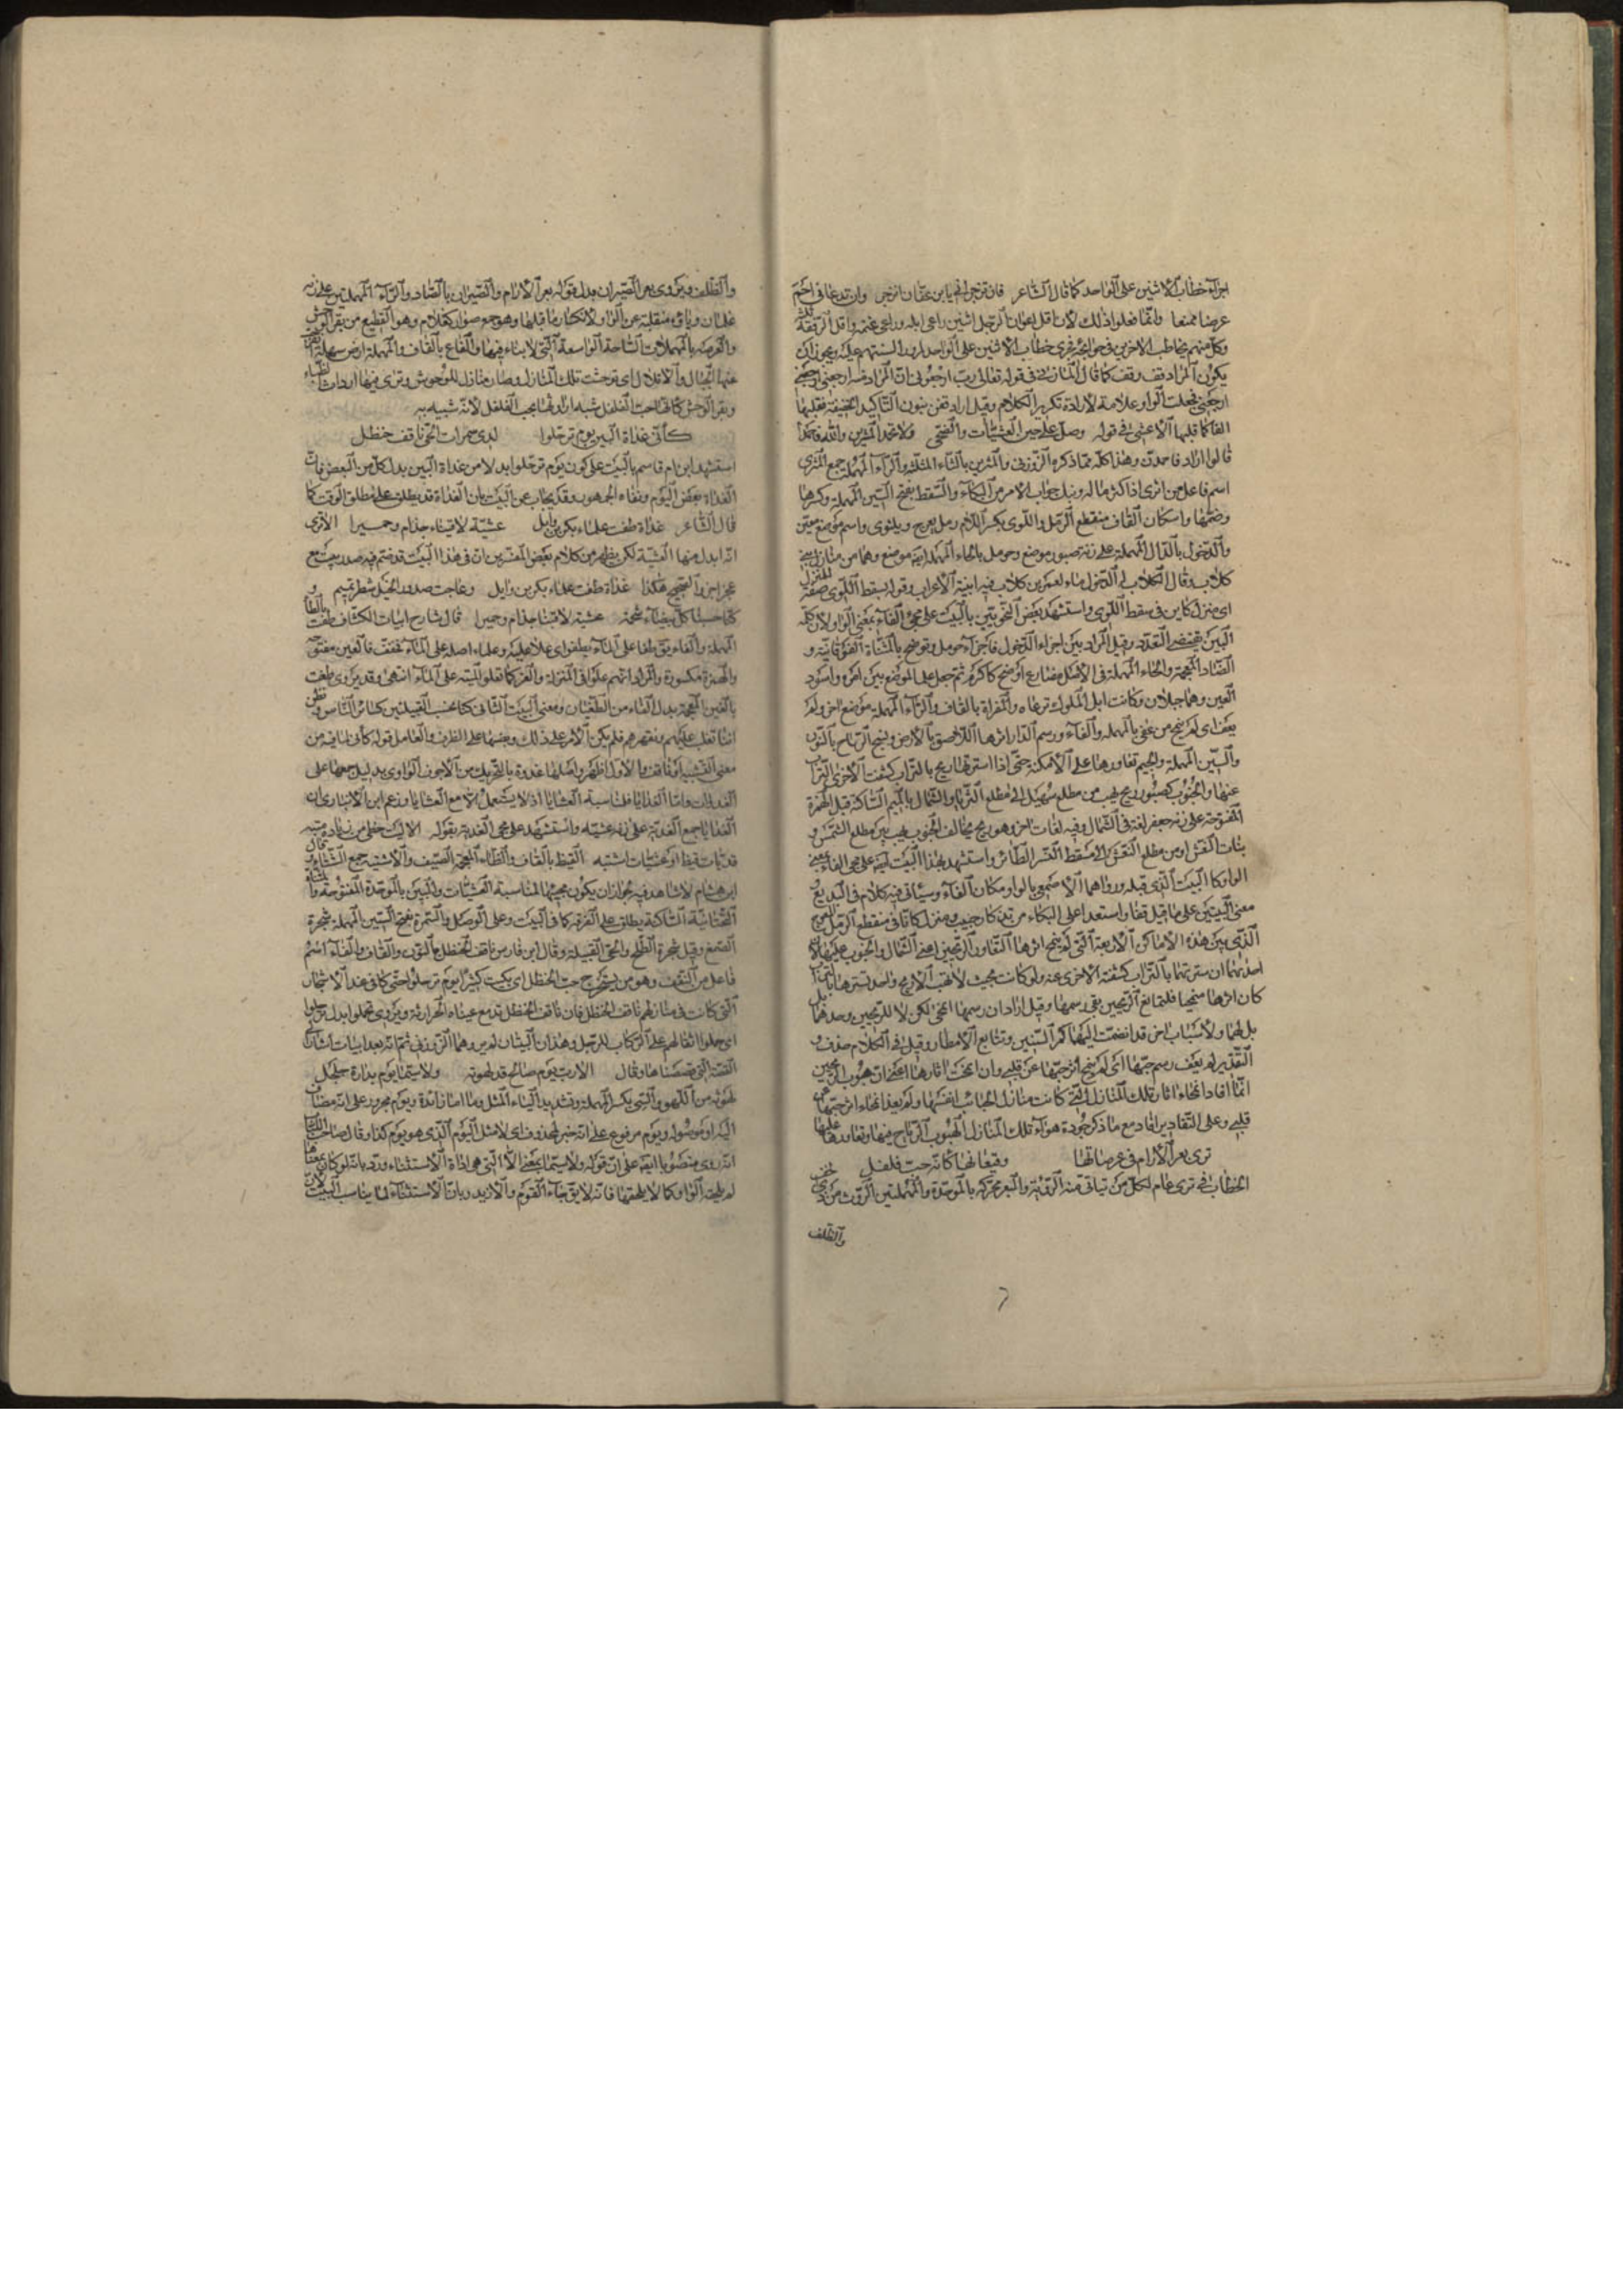 اجرآء خطاب الاثنين على الواحد كما قال الشاعر فان تزجراني يا ابن عفان انزجر وان تدعاني احم
عرضا ممنعا وانما فعلوا ذلك لان اقل اعوان الرجل اثنين راعى ابله وراعى غنمه واقل الرفقة ثلثة
وكل منهم يخاطب الاخرين في حوائجه فجرى خطاب الاثنين على الواحد لمرور السنتهم عليه ويجوز ان
يكون المراد قف قف كما قال المازنى في قوله تعالى رب ارجعونى ان المراد منه ارجعنى ارجعنى
ارجعنى فجعلت الواو علامة لارادة تكرير الكلام وقيل اراد قفن بنون التاكيد الخفيفة فقلبها
الفا كما قلبها الاعشى فى قوله وصل على حين العشيات والضحى ولا تحمد المثرين والله فاحمدا
قالوا اراد فاحمدن وهذا كله مما ذكره الزوزنى والمثرين بالثاء المثلثة والرآء المهملة جمع المثرى
اسم فاعل من اثرى اذا كثر ماله ونبك جواب الامر من البكآء والسقط بفتح السين المهملة وكسرها
وضمها واسكان القاف منقطع الرمل واللوى بكسر اللام رمل يعوج ويلتوى واسم موضع معين
والدخول بالدال المهملة على زنة صبور موضع وحومل بالحاء المهملة ايضا موضع وهما من منازل بنى
كلاب وقال الكلابى الدخول ماء لعمرو بن كلاب فيه ابنية الاعراب وقوله بسقط اللوى صفة لمنزل
اى منزل كاين فى سقط اللوى واستشهد بعض النحويين بالبيت على مجئ الفآء بمعنى الواو لان كلمة
البين تقتضى التعدد وقيل المراد بين اجزاء الدخول فاجزآء حومل وتوضح بالمثناة الفوقانية و
الضاد المعجمة والحاء المهملة فى الاصل مضارع اوضح كاكرم ثم جعل علما لموضع بين امره واسود
العين وهما جبلان وكانت ابل الملوك ترعاه والمقراة بالقاف والرآء المهملة موضع اخر ولم
يعف اى لم ينمح من عفى بالمهملة والفآء ورسم الدار اثرها اللاصق بالارض ونسج الرياح بالنون
والسين المهملة والجيم تعاورها على الامكنة حتى اذا سترتها ريح بالتراب كشفت الاخرى التراب
عنها والجنوب كصبور ريح تهب من مطلع سهيل الى مطلع الثريا والشمال بالميم الساكنة قبل الهمزة
المفتوحة على زنة جعفر لغة فى الشمال وفيه لغات اخر وهو ريح مخالف الجنوب يهب بين مطلع الشمس و
بنات النعش او من مطلع النعش الى مسقط النسر الطائر واستشهد بهذا البيت ايضا على مجئ الفاء بمعنى
الواو كالبيت الذى قبله ورواهما الاصمعى بالواو مكان الفآء وسياتى فيه كلام فى البديع
معنى البيتين على ما قيل قفا واستعدا على البكاء من تذكار حبيب ومنزل كانا فى منقطع الرمل المعوج
الذى بين هذه الاماكن الاربعة التى لم ينمح اثرها لتعاور الريحين اعنى الشمال والجنوب عليها لان
احديهما ان سترتها بالتراب كشفته الاخرى عنه ولو كانت بحيث لا تهب الا ريح واحد تسترها بالتراب
كان اثرها منمحيا فلتمانع الريحين بقى رسمها وقيل اراد ان رسمها انمحى لكن لا للريحين وحدهما بل
بل لهما ولاسباب اخر قد انضمت اليهما كمر السنين وتتابع الامطار وقيل فى الكلام حذف و
التقدير لم يعف رسم حبها اى لم ينمح اثر حبها عن قلبى وان انمحت اثارها اعنى ان هبوب الريحين
انما افاد انمحاء اثار تلك المنازل التى كانت منازل الحبائب انفسها ولم يفد انمحاء اثر حبها عن
قلبى وعلى التقادير افاد مع ما ذكر جودة هوآء تلك المنازل لهبوب الرياح فيها وتعاورها عليها
ترى بعر الآرام فى عرصاتها وقيعانها كانه حب فلفل
الخطاب فى ترى عام لكل من تتاتى منه الرؤية والبعر محركه بالموحدة والمهملتين الروث من ذى خف
والظلف
والظلف ويروى بعر الصيران بدل قوله بعر الارام والصيران بالصاد والرآء المهملتين على زنه
غلمان وياؤه منقلبة عن الواو لانكسار ما قبلها وهو جمع صوار كغلام وهو القطيع من بقر الوحش
والعرصة بالمهملات الساحة الواسعة التى لا بناء فيها والقاع بالقاف والمهملة ارض سهلة انفرجت
عنها الجبال والاقلال اى توحشت تلك المنازل وصار منازل للوحوش وترى فيها اروات الظباء
وبقر الوحش كانها حب الفلفل شبه ارواثها بحب الفلفل لانه شبيه به
كأنى غداة البين يوم ترحلوا لدى سمرات الحى ناقف حنظل
استشهد ابن ام قاسم بالبيت على كون يوم ترحلوا بدلا من غداة البين بدل كل من البعض فان
الغداة بعض اليوم ونفاه الجمهور وقد يجاب عن البيت بان الغداة قد يطلق على مطلق الوقت كما
قال الشاعر غداة طفت علماء بكر بن وايل عشية لاقينا جذام وحميرا الا ترى
انه ابدل منها العشية لكن يظهر من كلام بعض المفسرين ان فى هذا البيت قد ضم فيه صدر بيت مع
عجز اخر والصحيح هكذا غداة طفت علماء بكر بن وايل وعاجت صدور الخيل شطر تميم و
كنا حسبنا كل بيضآء شحمة عشية لاقينا جذام وحميرا قال شارح ابيات الكشاف طفت بالطآء
المهملة والفاء يق طفا على المآء يطفو اى علا عليه وعلماء اصله على المآء فخفف فالعين مفتوحه
والهمزة مكسورة والمراد انهم علوا فى المنزلة والعز كما تعلو الميتة على المآء انتهى وقد يروى طغت
بالغين المعجمة بدل الفاء من الطغيان ومعنى البيت الثانى كنا نحسب القبيلتين كسائر الناس ونظن
اننا نغلب عليهم ونقهرهم فلم يكن الامر على ذلك ونصبها على الظرف والعامل قوله كأنى لما فيه من
معنى التشبيه او ناقف والاول اظهر واصلها غدوة بالتحريك من الاجوف الواوى بدليل جمعها على
الغدوات واما الغدايا فلمناسبة العشايا اذ لا يستعمل الا مع العشايا وزعم ابن الانبارى ان
الغدايا جمع الغدية على زنة عشية واستشهد على مجئ الغدية بقوله الا ليت حظى من زيارة ميه
غديات قيظ او عشيات اشتيه القيظ بالقاف والظآء المعجمة الصيف والاشتية جمع الشتاء وقال
ابن هشام لا شاهد فيه لجواز ان يكون مجيئها لمناسبة العشيات والبين بالموحدة المفتوحة والياء
التحتانية الساكنة يطلق على الفرقة كما فى البيت وعلى الوصل والسمرة بفتح السين المهملة شجرة
الصمغ وقيل شجرة الطلح والحى القبيلة وقال ابن فارس ناقف الحنظل بالنون والقاف والفآء اسم
فاعل من النقف وهو من يستخرج حب الحنظل اى بكيت كثيرا يوم ترحلوا حتى كانى عند الاشجار
التى كانت فى منازلهم ناقف الحنظل فان ناقف الحنظل تدمع عيناه لحرارته ويروى تحملوا بدل ترحلوا
اى حملوا اثقالهم على الركاب للرحيل وهذان البيتان لم يروهما الزوزنى ثم انه بعد ابيات اشار الى
القصة التى قصصناها وقال الا رب يوم صالح قد لهوته ولا سيما يوم بدارة جلجل
لهوته من اللهو والسى بكسر المهملة وتشديد اليآء المثل وما اما زائدة ويوم مجرور على انه مضاف
اليه او موصوله ويوم مرفوع على انه خبر لمحذوف اى لا مثل اليوم الذى هو يوم كذا وقال صاحب
انه روى منصوبا ايضا على ان قوله ولا سيما بمعنى الا التى هى اداة الاستثناء ورد بانه لو كان بمعناها
لم يلحقه الواو كما لا يلحقها فانه لا يق جآء القوم والا زيد وبان الاستثناء لا يناسب البيت لان